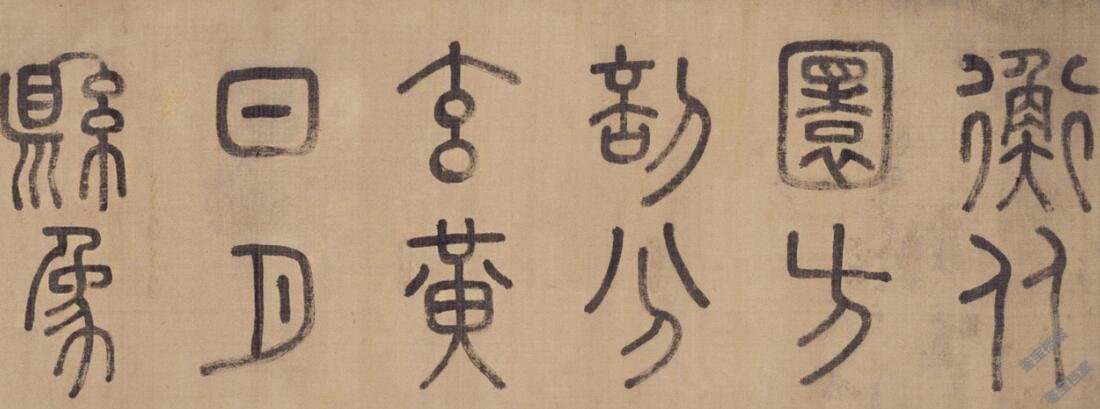 衡从
圜方
剖分
玄黃
日月
縣象
鉴宝档案
鉴宝档案